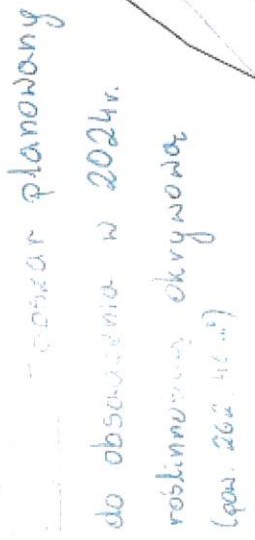 obszar planowany
do obsadzenia w 2024r.
roślinnością okrywową
(pow.